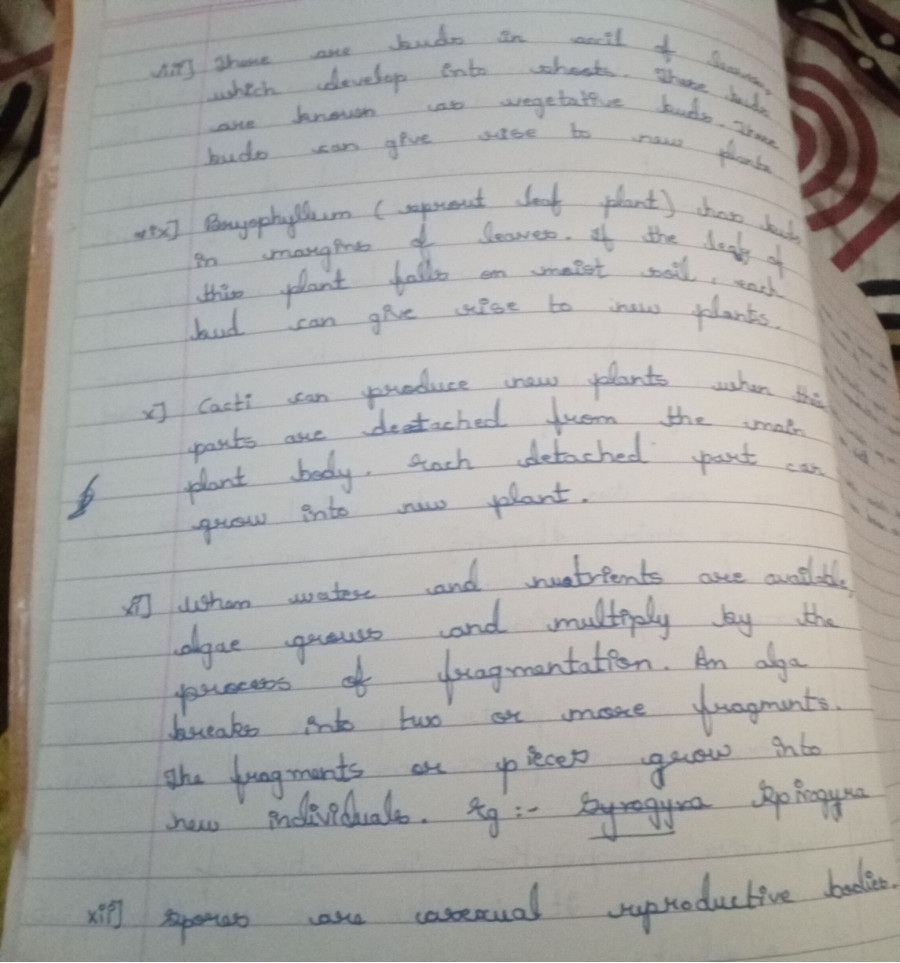 viii] There are buds in axil of leaves,
which develop into shoots. These buds
are known as vegetative buds. These
buds can give rise to new plants
ix] Bryophyllum (sprout leaf plant) has buds
in margins of leaves. If the leaf of
this plant falls on moist soil, each
bud can give rise to new plants.
x] Cacti can produce new plants when this
parts are detached from the main
plant body. Each detached part can
grow into new plant.
xi] When water and nutrients are available,
algae grows and multiply by the
process of fragmentation. An alga
breaks into two or more fragments.
The fragments or pieces grow into
new individuals. Eg :- Spirogyra
xii] Spores are asexual reproductive bodies.